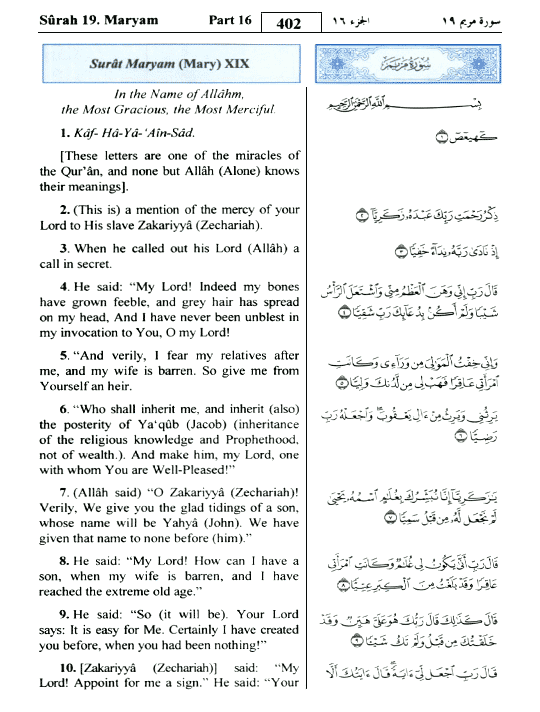 Sûrah 19. Maryam Part 16 402 الجزء ١٦ سورة مريم ١٩
Surât Maryam (Mary) XIX
In the Name of Allâhm,
the Most Gracious, the Most Merciful.
1. Kâf- Hâ-Yâ-‘Aîn-Sâd.
[These letters are one of the miracles of
the Qur’ân, and none but Allâh (Alone) knows
their meanings].
2. (This is) a mention of the mercy of your
Lord to His slave Zakariyyâ (Zechariah).
3. When he called out his Lord (Allâh) a
call in secret.
4. He said: “My Lord! Indeed my bones
have grown feeble, and grey hair has spread
on my head, And I have never been unblest in
my invocation to You, O my Lord!
5. “And verily, I fear my relatives after
me, and my wife is barren. So give me from
Yourself an heir.
6. “Who shall inherit me, and inherit (also)
the posterity of Ya‘qûb (Jacob) (inheritance
of the religious knowledge and Prophethood,
not of wealth.). And make him, my Lord, one
with whom You are Well-Pleased!”
7. (Allâh said) “O Zakariyyâ (Zechariah)!
Verily, We give you the glad tidings of a son,
whose name will be Yahyâ (John). We have
given that name to none before (him).”
8. He said: “My Lord! How can I have a
son, when my wife is barren, and I have
reached the extreme old age.”
9. He said: “So (it will be). Your Lord
says: It is easy for Me. Certainly I have created
you before, when you had been nothing!”
10. [Zakariyyâ (Zechariah)] said: “My
Lord! Appoint for me a sign.” He said: “Your
سُورَةُ مَرْيَمَ
بِسْمِ اللَّهِ الرَّحْمَٰنِ الرَّحِيمِ
كٓهيعٓصٓ ١
ذِكْرُ رَحْمَتِ رَبِّكَ عَبْدَهُۥ زَكَرِيَّآ ٢
إِذْ نَادَىٰ رَبَّهُۥ نِدَآءً خَفِيًّا ٣
قَالَ رَبِّ إِنِّى وَهَنَ ٱلْعَظْمُ مِنِّى وَٱشْتَعَلَ ٱلرَّأْسُ
شَيْبًا وَلَمْ أَكُنۢ بِدُعَآئِكَ رَبِّ شَقِيًّا ٤
وَإِنِّى خِفْتُ ٱلْمَوَٰلِىَ مِن وَرَآءِى وَكَانَتِ
ٱمْرَأَتِى عَاقِرًا فَهَبْ لِى مِن لَّدُنكَ وَلِيًّا ٥
يَرِثُنِى وَيَرِثُ مِنْ ءَالِ يَعْقُوبَ ۖ وَٱجْعَلْهُ رَبِّ
رَضِيًّا ٦
يَٰزَكَرِيَّآ إِنَّا نُبَشِّرُكَ بِغُلَٰمٍ ٱسْمُهُۥ يَحْيَىٰ
لَمْ نَجْعَل لَّهُۥ مِن قَبْلُ سَمِيًّا ٧
قَالَ رَبِّ أَنَّىٰ يَكُونُ لِى غُلَٰمٌ وَكَانَتِ ٱمْرَأَتِى
عَاقِرًا وَقَدْ بَلَغْتُ مِنَ ٱلْكِبَرِ عِتِيًّا ٨
قَالَ كَذَٰلِكَ قَالَ رَبُّكَ هُوَ عَلَىَّ هَيِّنٌ وَقَدْ
خَلَقْتُكَ مِن قَبْلُ وَلَمْ تَكُ شَيْـًٔا ٩
قَالَ رَبِّ ٱجْعَل لِّىٓ ءَايَةً ۚ قَالَ ءَايَتُكَ أَلَّا